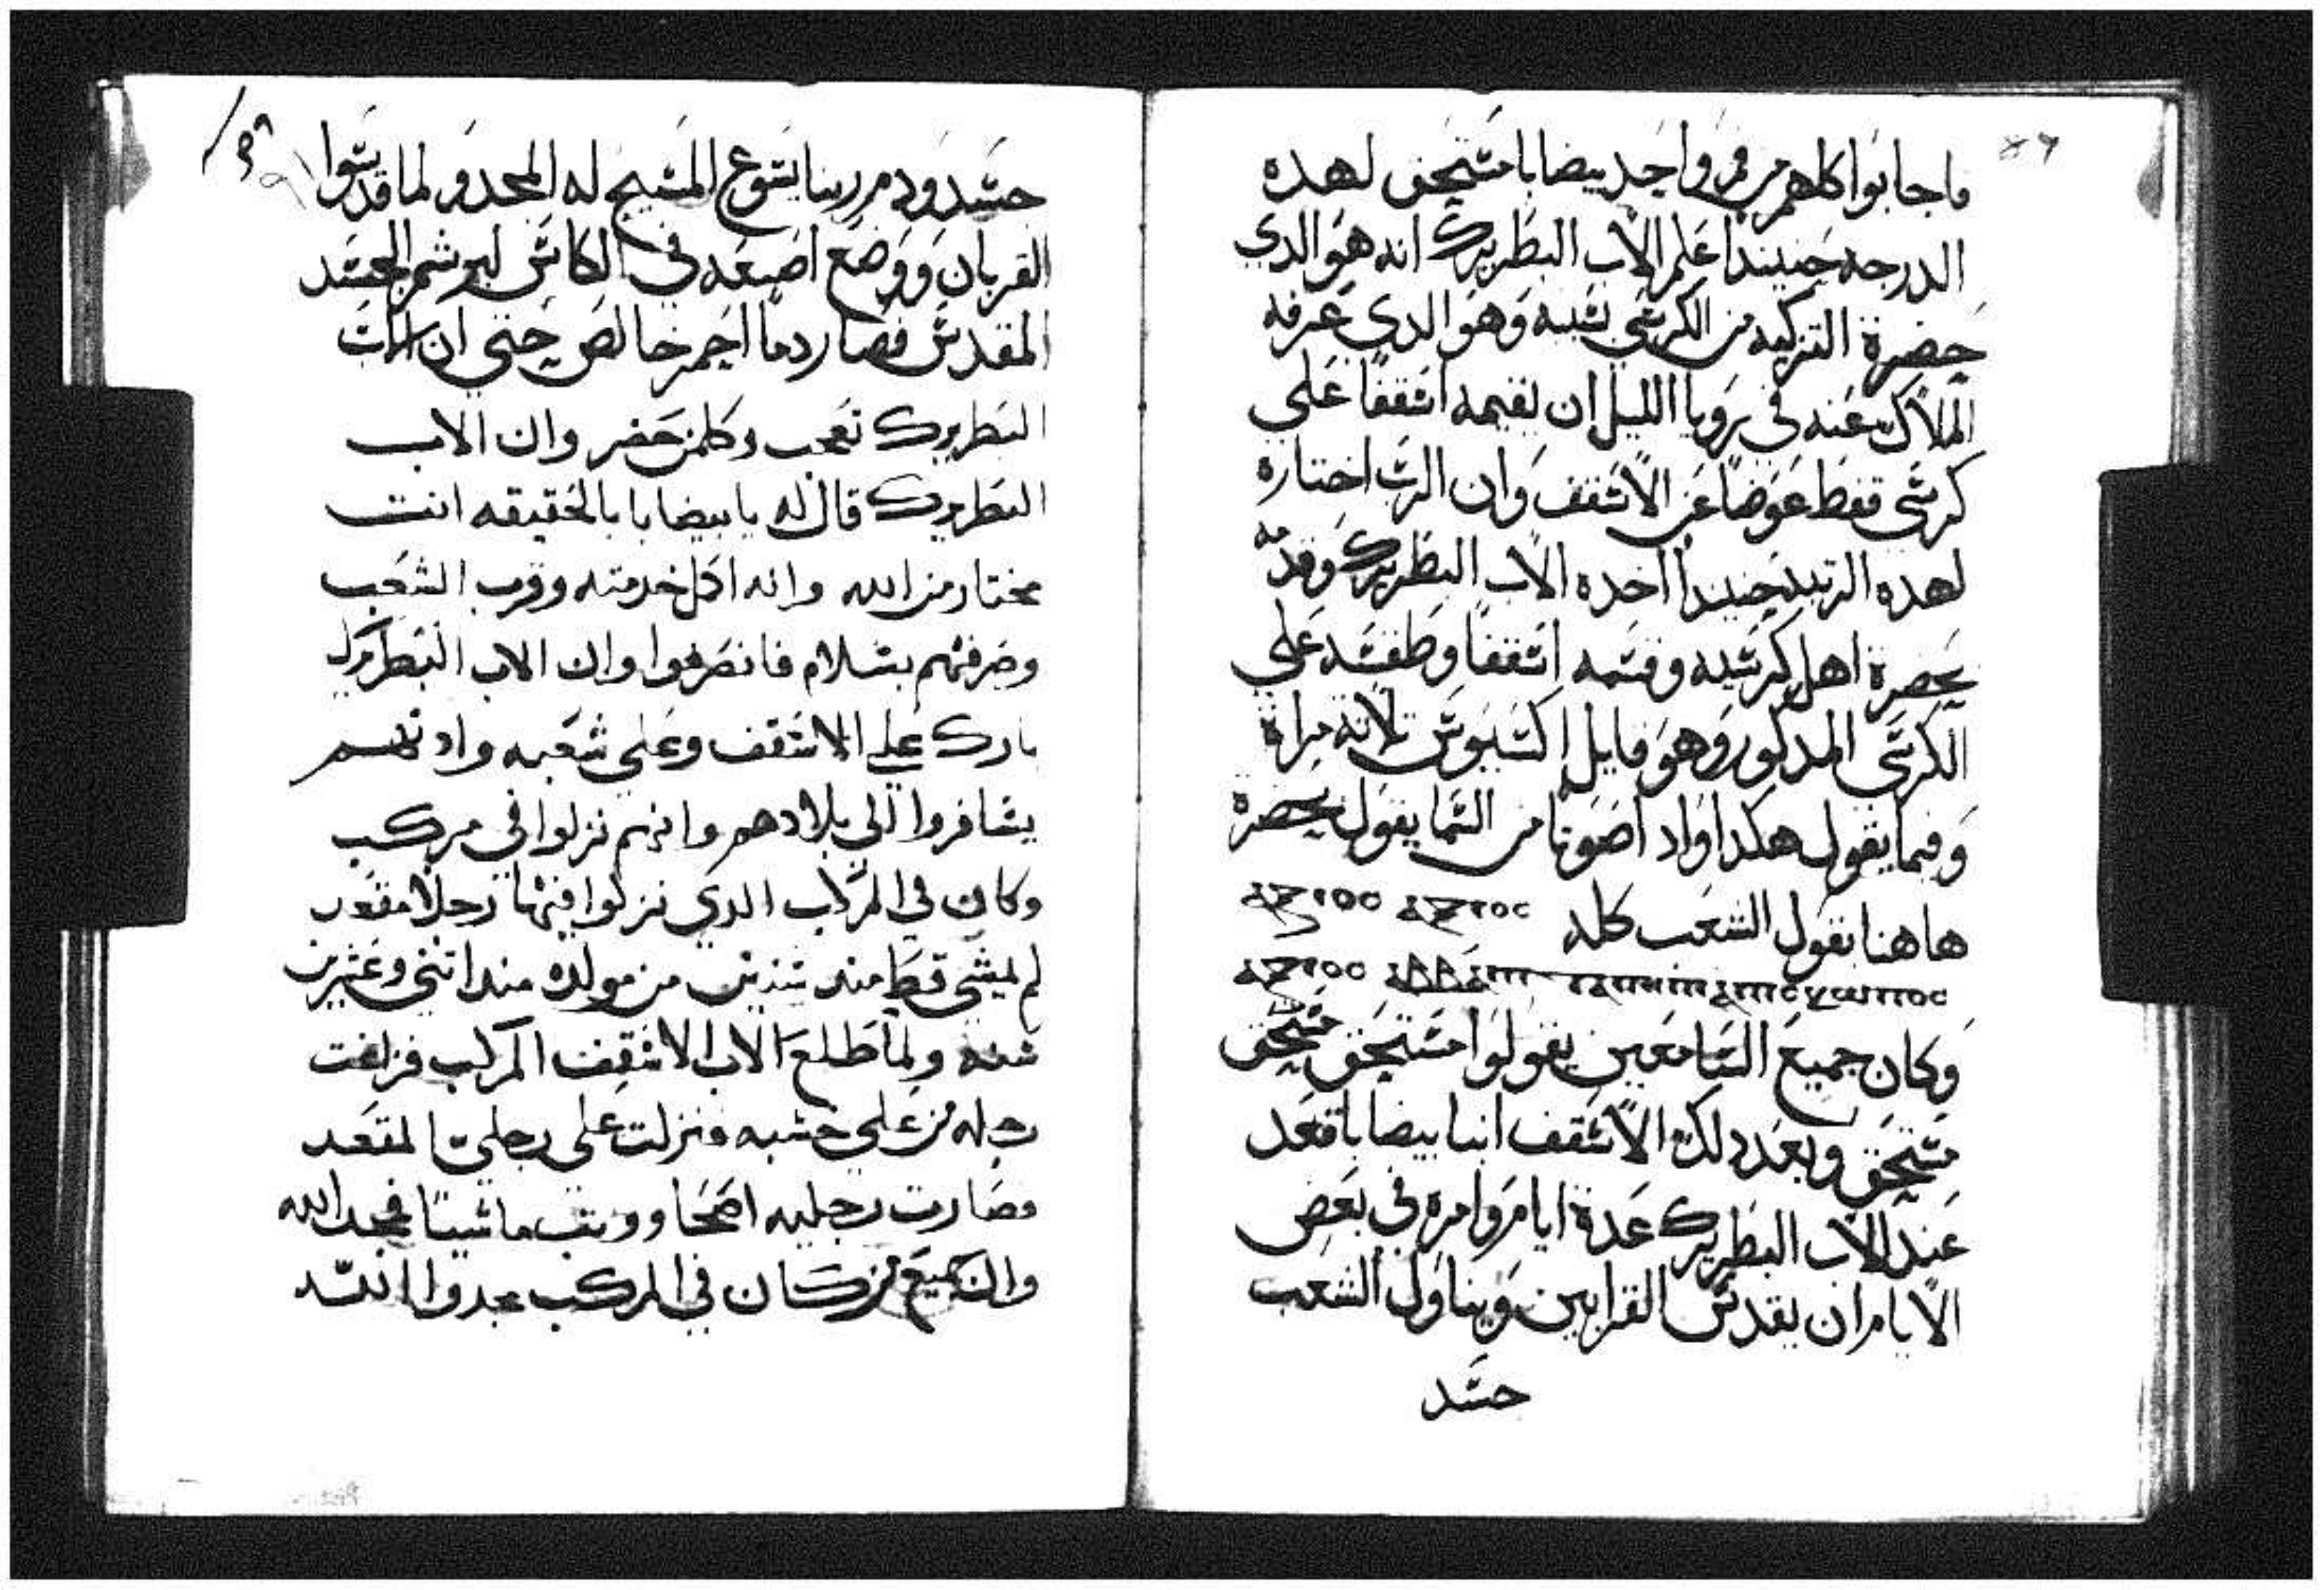 فاجابوا كلهم من فم واحد بيضابا مستحق لهده
الدرجه حينيدا علم الاب البطريرك انه هو الدي
حضرة التزكيه من الكرسي بسببه وهو الدي عرفه
الملاك عنه في رويا الليل ان يقيمه اسقفا علي
كرسي قفط عوضا عن الاسقف وان الرب اختاره
لهده الرتبه حينيدا اخده الاب البطريرك وقدمه
بحضرة اهل كرسيه وقسمه اسقفا وطقسه علي
الكرسي المدكور وهو قايل اكسيوس تلاتة مراة
وفيما يقول هكدا واد اصوتا من السما يقول بحضرة
هاهنا يقول الشعب كله ⲁⲝⲓⲟⲥ ⲁⲝⲓⲟⲥ
ⲁⲝⲓⲟⲥ
وكان جميع السامعين يقولوا مستحق مستحق
مستحق وبعد دلك الاسقف انبا بيضابا قعد
عند الاب البطريرك عدة ايام وامره في بعض
الايام ان يقدس القرابين ويناول الشعب
حسد
٨٩
حسد ودم ربنا يسوع المسيح له المجد ولما قدسوا
القربان ووضع اصبعه في الكاس ليرشم الجسد
المقدس فصار دما احمر خالص حتي ان الاب
البطريرك تعجب وكلمن حضر وان الاب
البطريرك قال له يا بيضابا بالحقيقه انت
مختار من الله وانه اكمل خدمته وقرب الشعب
وصرفهم بسلام فانصرفوا وان الاب البطريرك
بارك علي الاسقف وعلي شعبه وادنهم
يسافروا الي بلادهم وانهم نزلوا في مركب
وكان في المركب الدي نزلوا فيها رجلا مقعد
لم يمشي قط مند سنين من مولده مند اتني وعشرين
سنه ولما طلع الاب الاسقف المركب فزلفت
رجله من علي خشبه فنزلت علي رجلين المقعد
فصارت رجليه اصحا ووتب ماشيا فمجد الله
وان جميع من كان في المركب مجدوا الله